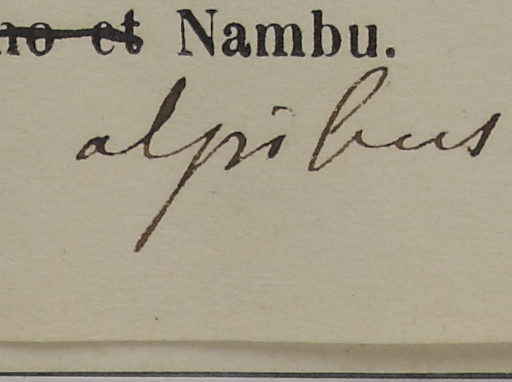 no et Nambu.
alpibus